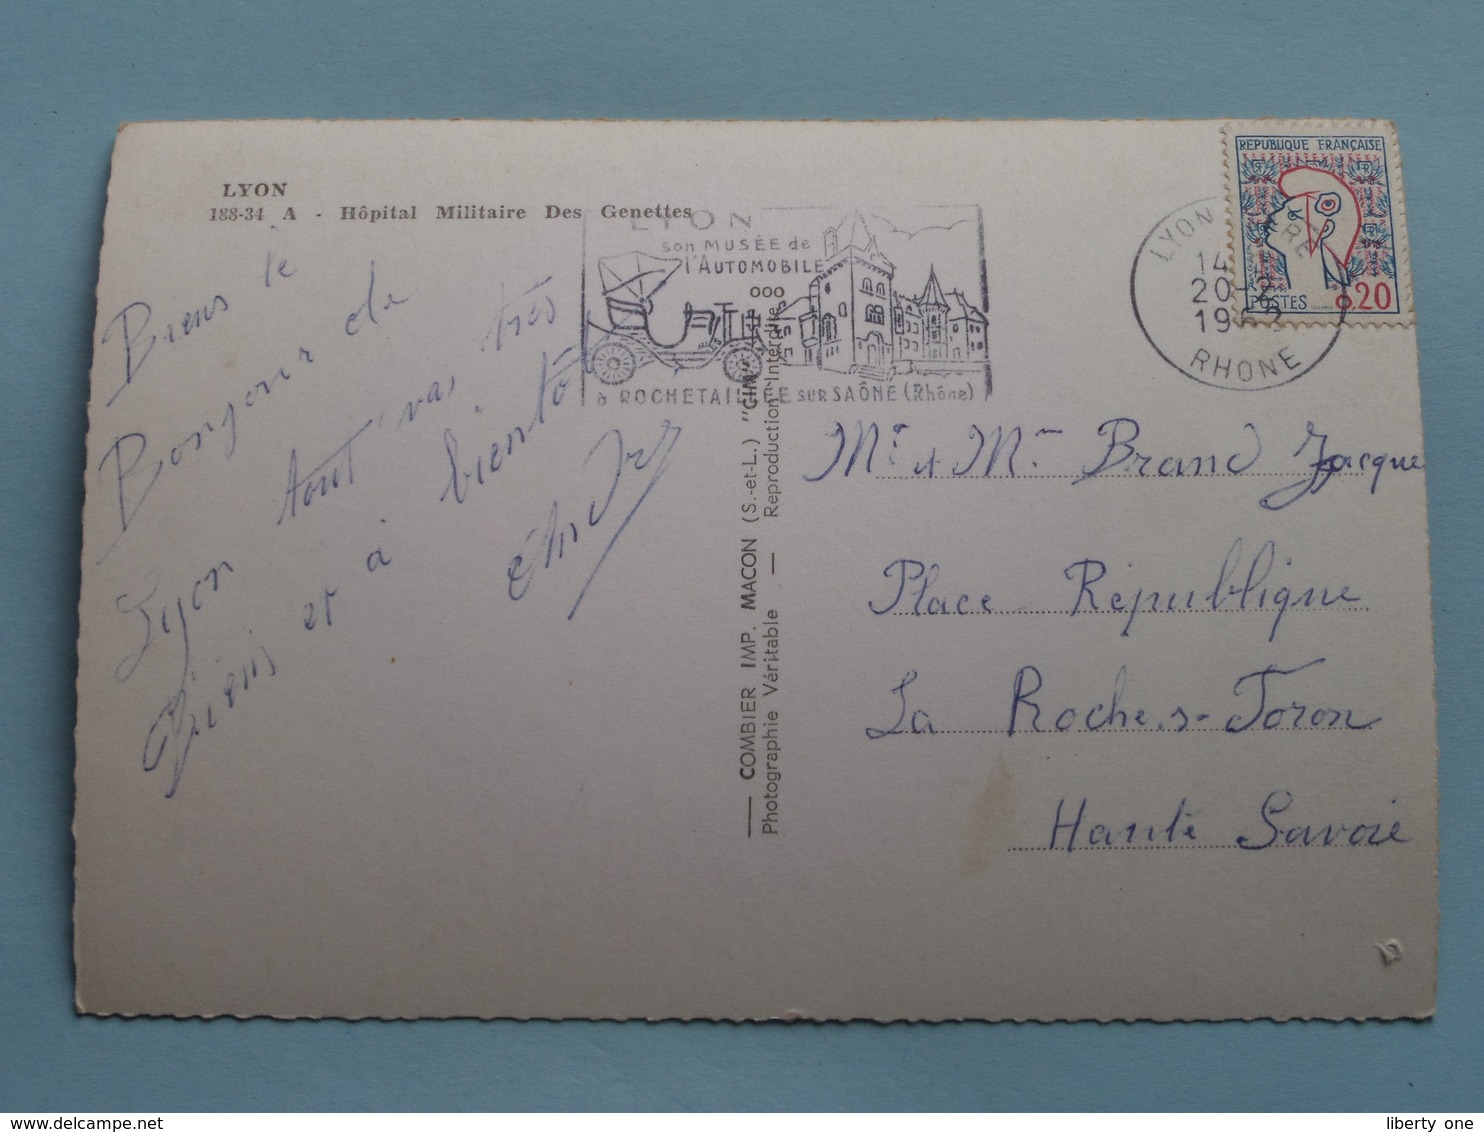 LYON
188-34 A - Hôpital Militaire Des Genettes
LYON
son MUSÉE de
l'AUTOMOBILE
ooo
à ROCHETAILLÉE sur SAÔNE (Rhône)
LYON GARE
14
20-2
1962
RHONE
REPUBLIQUE FRANÇAISE
POSTES
0.20
Biens le
Bonjour de
Lyon tout va, très
biens et à bientôt
COMBIER IMP. MACON (S.-et-L.) "CIM"
Photographie Véritable — Reproduction Interdite
Mr et Mme Brand Jacque
Place Republique
La Roche.s-Foron
Haute Savoie
liberty one